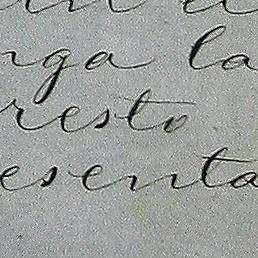 rga la
resto
esenta